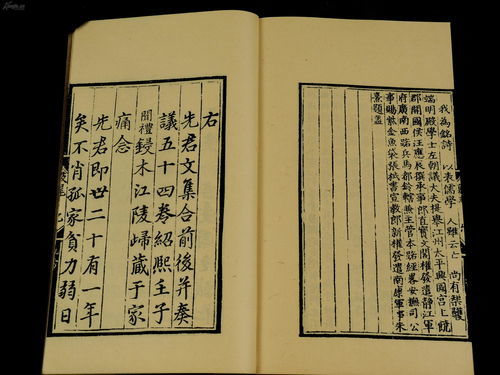 我為銘詩 以表儒學 人雖云亡 尚有榘彠
端明殿學士左朝議大夫提舉江州太平興國宮上饒
郡開國侯汪應辰撰承事郎直寶文閣權發遣靜江軍
府廣南西路兵馬都鈐轄兼主管本路經畧安撫司公
事賜紫金魚袋張栻書宣教郎新權發遣南康軍事朱
熹題蓋
右
先君文集合前後并奏
議五十四卷紹熙壬子
開禮鋟木江陵歸藏于家
痛念
先君即世二十有一年
矣不肖孤家貧力弱日